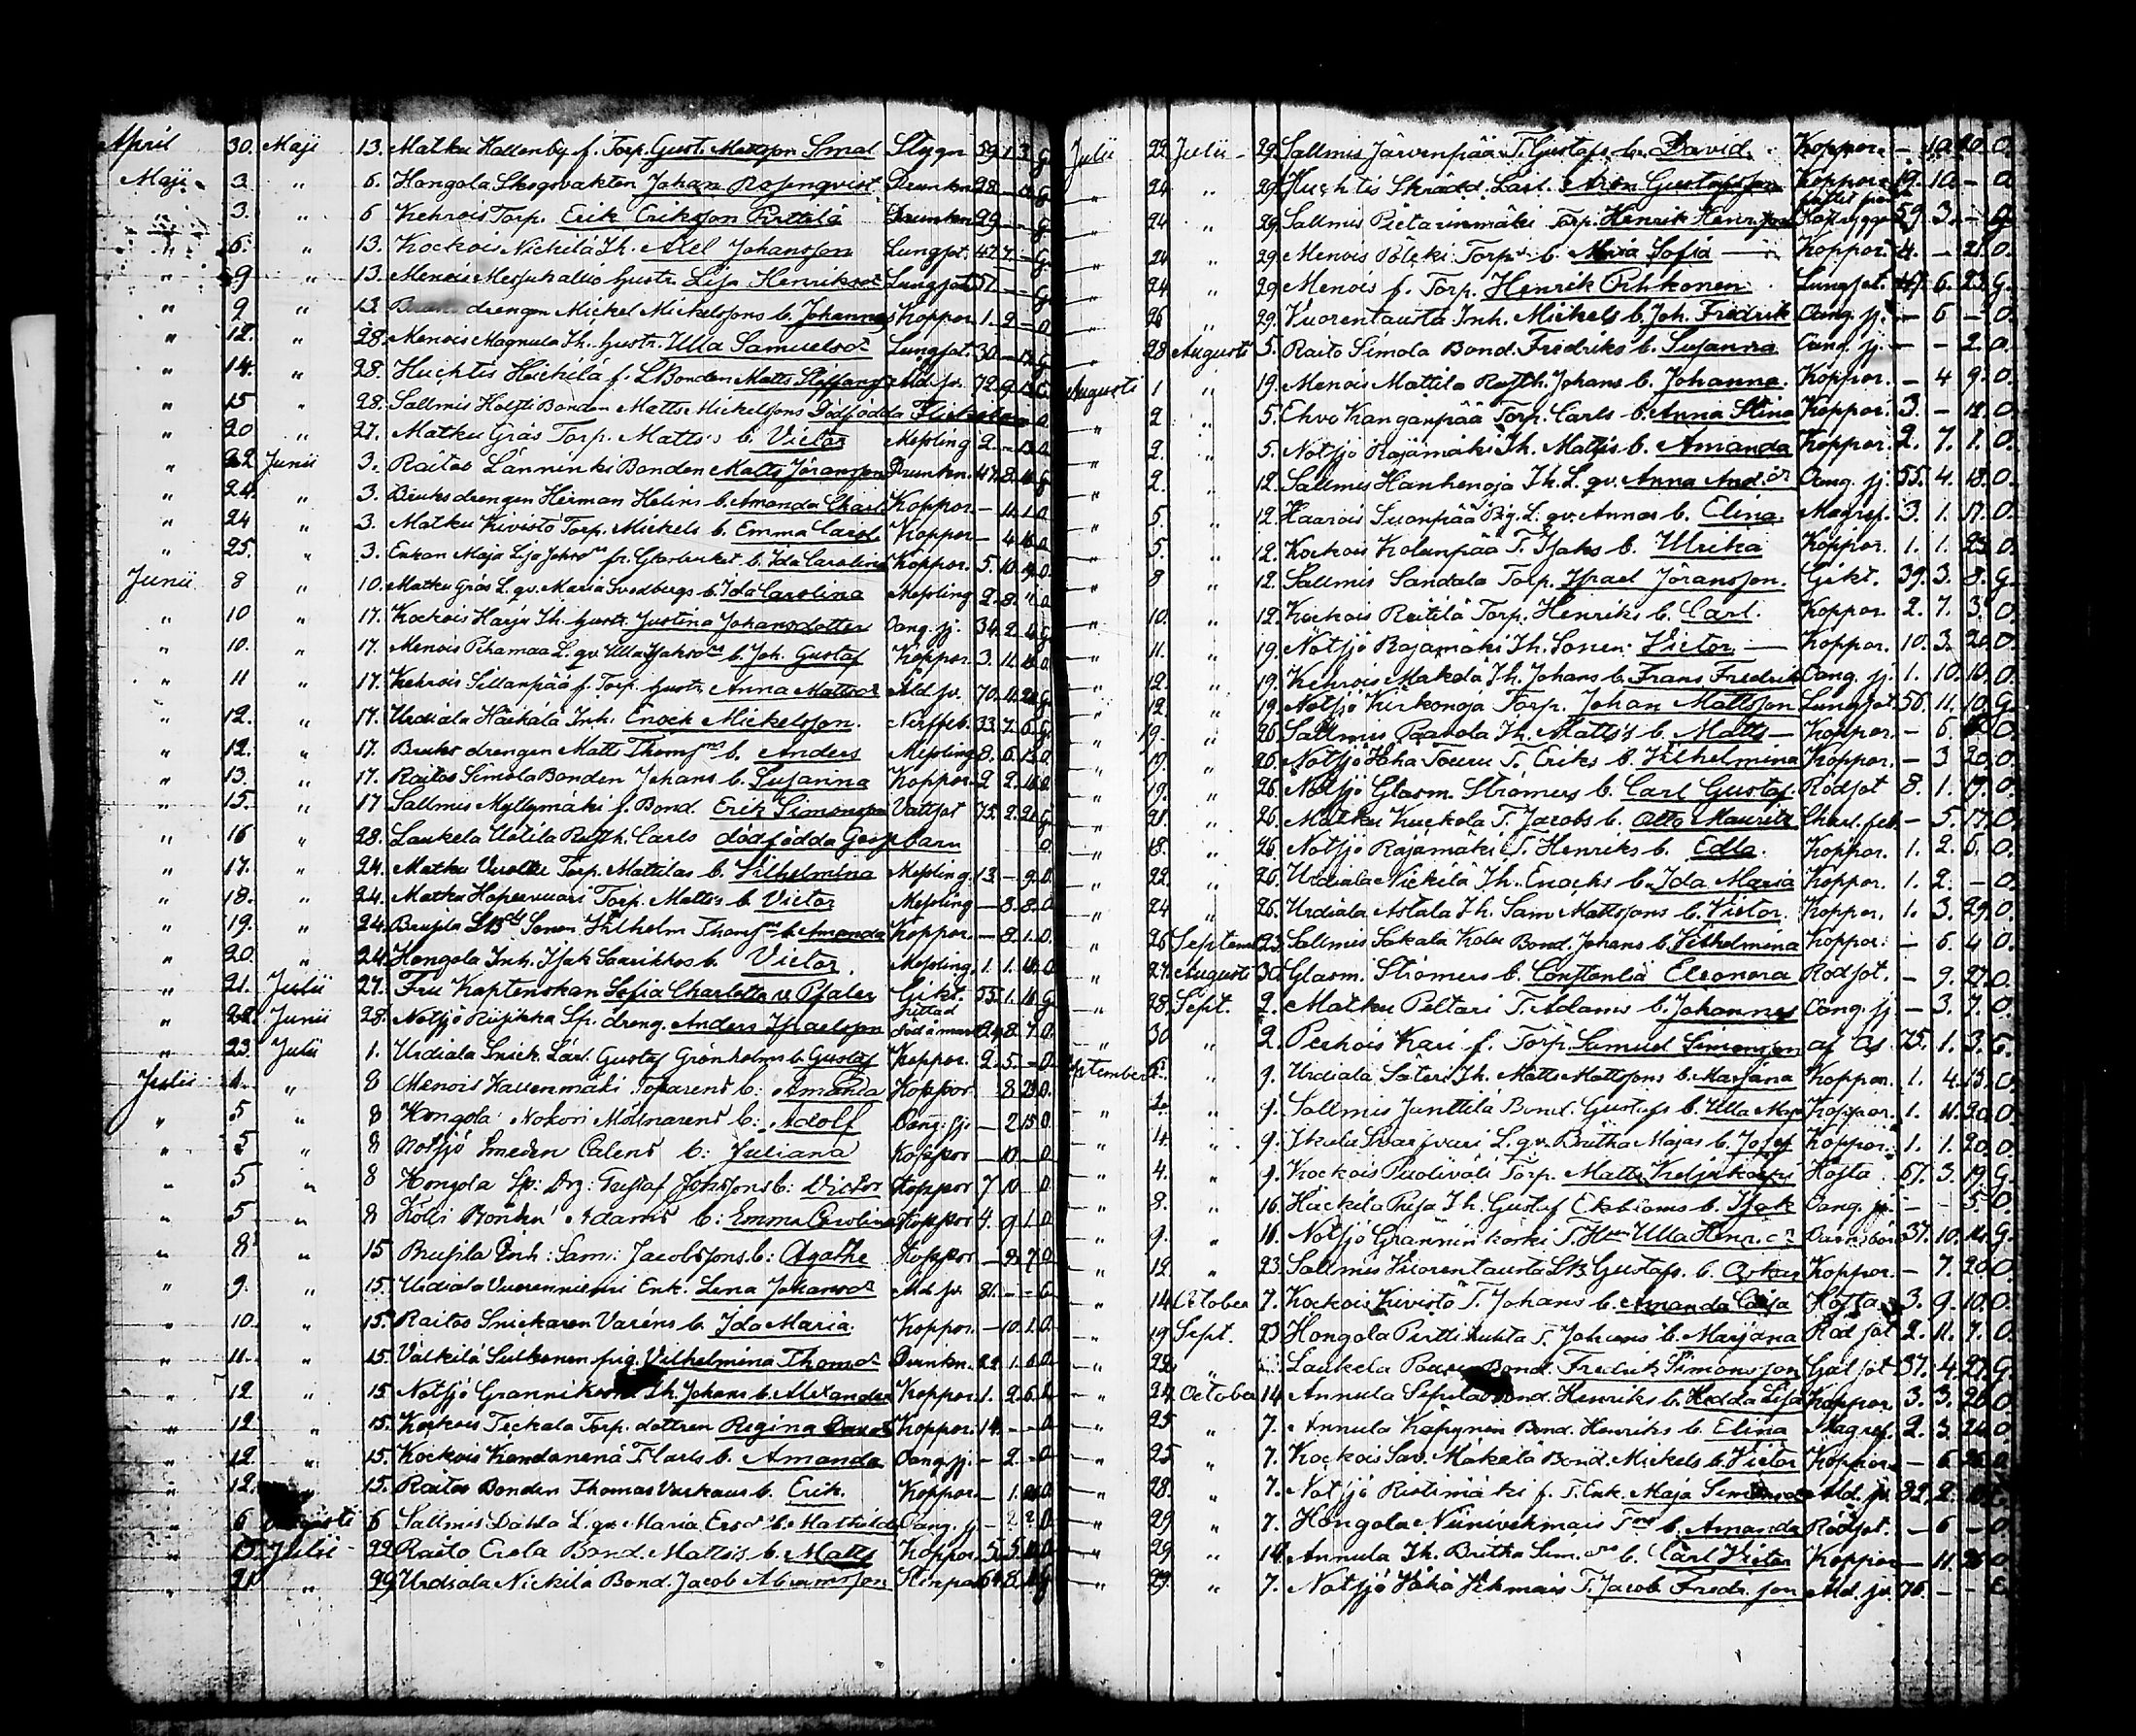 April 30. Maji 13. Matku Hallenby f. Torp. Gust. Mattsson Smal Slagn 59. 1. 3. G
Maji 3. " 6. Hongola Skogsvakten Johan Rosenqvist Drunkn 28. — G
" 3. " 6 Kehrois Torp. Erik Eriksson Perttilä Drunkn 29 — G
" 6. " 13. Kockois Nickilä Th. Axel Johansson Lungsot. 47. 7. — G.
" 9 " 13. Menois hustr. Lisa Henriksdr Lungsot — G
" 9 " 13 drengen Mickel Mickelssons b. Johannes Koppor. 1. 2 — O
" 12. " 28. Menois Magnula Th. hustr. Ulla Samuelsdr Lungsot. 30. — G
" 14. " 28. Huchtis Heickilä f. L Bonden Matts Åld. sv. 72. 9
" 15 " 28. Sallmis Holsti Bonden Matts Mickelssons Dödfödda Flickebarn O
" 20 " 27. Matku Gräs Torp. Matts's b. Victor Messling 2. — 13. O
" 22. Junii 3. Raitoo Länninki Bonden Matts Jöransson Drunkn. 47. 8. G
" 24. " 3. Bruksdrengen Herman Helins b. Amanda Charl. Koppor — 11. 1. O
" 24 " 3. Matku Kivistö Torp. Mickels b. Emma Carol. Koppor — 4 O
" 25. " 3. Enkan Maja Lisa b. Ida Carolina Koppor. 5. 10. O.
Junii 8 " 10. Matku Gräs L. qv. Maria Svedbergs b. Ida Carolina Messling 2. 8. O
" 10 " 17. Kockois Harju Th. hustr. Justina Johansdotter Oang. sj. 34. 2. G
" 10. " 17. Menois Pihamaa L. qv. Ulla b. Joh. Gustaf Koppor. 3. 11. O
" 11 " 17. Kehrois Sillanpää f. Torp. hustr. Anna Mattsdr Åld. sv. 70. 11. G
" 12. " 17. Urdiala Häckälä Inh. Enock Mickelsson. Nerffeb. 33. 7. 6. G.
" 12. " 17. Bruks drengen Matts b. Anders Messling 8. 6. 13. O
" 13. " 17. Raitoo Simola Bonden Johans b. Susanna Koppor. 2 2. O
" 15. " 17 Sallmis Myllymäki f. Bond. Erik Simonsson Vattsot 75. 2. 21. G
" 16 " 28. Laukela Uotila Rusth. Carls dödfödda Gossebarn O.
" 17. " 24. Matku Torp. Mattilas b. Vilhelmina Messling. 13. — 9. O.
" 18. " 24. Matku Haposuuari Torp. Matts's b. Victor Messling — 8. 8. O
" 19. " 24. Sonen Vilhelm b. Amanda Koppor. — 8. 1. O.
" 20. " 24. Hongola Inh. Isak Saarikkos b. Victor. Messling. 1. 1. O.
" 21. Julii 27. Fru Kaptenskan Sofia Charlotta v. Pfaler Gikt. 55. 1. 11. G.
" 22. Junii 28. Notsjö Sp. dreng. Anders Israelsson hittad död å mark 24. 8. 7. O.
" 23. Julii 1. Urdiala Snick. Lärl. Gustaf Grönholms b. Gustaf Koppor. 2. 5. — O
Julii 1. " 8 Menois Havenmäki Toparens b: Amanda Koppor 8 21 O.
" 5 " 8 Hongola Nokon Mölnarens b: Adolf Oang: sj. — 2 15 O.
" 5 " 8 Notsjö Smeden Calens b: Juliana Koppor — 10 — O
" 5 " 8 Hongola Sp: Drg: Gustaf b: Victor Koppor 7 10 O
" 5 " 8 Bonden Adams b: Emma Carolina Koppor 4. 9. 1. O
" 8 " 15 Inh: Sam: Jacobssons b: Agathe Koppor — 2. 7 O
" 9. " 15. Urdiala Vuorenniemi Enk. Lena Johansdr Åld. sv. 81. — — G
" 10. " 15. Raitoo Snickaren Varéns b. Ida Maria. Koppor. — 10. 1. O
" 11. " 15. Valkilä Sulkonen pig. Vilhelmina Thomdr Drunkn. 22. 1. 6. O
" 12. " 15. Notsjö Th. Johans b. Alexander Koppor. 1. 2. 6.
" 12. " 15. Kockois Teckala Torp. dottren Regina Koppor. 14. — — O
" 12. " 15. Kockois T. Carls b. Amanda Oang. sj. — 2. — O
" 12. " 15. Raitoo Bonden Thomas b. Erik. Koppor. — 1. O
" 6 Augusti 6 Sallmis Dahla L. qv. Maria Ersdr b. Mathilda Oang. sj — 2 2 O
" 15. Julii 22 Raito Erola Bond. Matts's b. Matts Koppor. 5. 5. O
" 21. " 29 Urdiala Nickilä Bond. Jacob Abramsson 64. 8. G
Julii 22 Julii 29. Sallmis Järvenpää T. Gustafs b. David. Koppor. — 10. O.
" 24 " 29. Huchtis Skrädd. Lärl. Aron Gustafsson Koppor. 19. 10. — O
" 24 " 29. Sallmis Pietarinmäki Torp. Henrik Henriksson 59. 3. — G
" 24 " 29. Menois Torps b. Maria Sofia — Koppor. 4. — 21. O.
" 24 " 29. Menois f. Torp. Henrik Pihkonen. Lungsot. 47. 6. 23. G.
" 26 " 29. Vuorentausta Inh. Mickels b. Joh. Fredrik Oang. sj. — 6 — O.
" 28 Augusti 5. Raito Simola Bond. Fredriks b. Susanna Oang. sj. — — 2. O.
Augusti 1 " 19. Menois Mattila Rusth. Johans b. Johanna. Koppor. — 4 9. O.
" 2 " 5. Ehvo Kanganpää Torp. Carls b. Anna Stina Koppor. 3. — 12. O.
" 2. " 5. Notsjö Rajämäki Th. Matts's b. Amanda Koppor. 2. 7. 1. O.
" 2. " 12. Sallmis Hanhenoja Th. L. qv. Anna And.dr Oang. sj. 55. 4. 18. O.
" 5. " 12. Haarois Suonpää L. qv. Annas b. Elina. Magref. 3. 1. 17. O.
" 5. " 12. Kockois Kolunpää T. Isaks b. Ulrika Koppor. 1. 1. 23. O.
" 8 " 12. Sallmis Sandala Torp. Israel Jöransson. Gikt. 39. 3. 8. G.
" 10. " 12. Kockois Raitilä Torp. Henriks b. Carl. Koppor. 2. 7. 3. O.
" 11. " 19. Notsjö Rajamäki Th. Sonen Victor — Koppor. 10. 3. 20. O
" 12. " 19. Kehrois Makelä Th. Johans b. Frans Fredrik Oang. sj. 1. 10. 16. O.
" 12. " 19. Notsjö Kirkonoja Torp. Johan Mattsson Lungsot. 56. 11. 10. G
" 19. " 26 Sallmis Paavola Th. Matts's b. Matts — Koppor. — 6. O
" 19. " 26. Notsjö T. Eriks b. Vilhelmina Koppor. — 3 20. O
" 19. " 26. Notsjö Glasm. Strömers b. Carl Gustaf. Rödsot 8. 1. 19. O
" 21. " 26. Matku Kuckola T. Jacobs b. Otto Mauritz Charl. feb — 5. 17. O.
" 18. " 26. Notsjö Rajämäki T. Henriks b. Edla. Koppor. 1. 2. 6. O.
" 22. " 26. Urdiala Nickilä Th. Enochs b. Ida Maria Koppor. 1. 2. — O.
" 24 " 26. Urdiala Astala Th. Sam Mattssons b. Victor. Koppor. 1. 3. 29. O
" 26 Septem 23. Sallmis Sakala Bond. Johans b. Vilhelmina Koppor. — 6. 4 O.
" 27. Augusti 30. Glasm. Strömers b. Constantia Eleonora Rödsot. — 9. 27. O.
" 28. Sept. 2. Matku Peltari T. Adams b. Johannes Oang. sj — 3. 7. O.
" 30 " 2. Perhois Kari f. Torp. Samuel Simonsson af 75. 1. 3. G.
September " 9. Urdiala Säteri Th. Matts Mattssons b. Marjana Koppor. 1. 4. 13. O.
" " 9. Sallmis Junttila Bond. Gustafs b. Ulla Maja Koppor. 1. 11. 20. O
" 4. " 9. L. qv. Britha Majas b. Josef Koppor. 1. 1. 20. O
" 4. " 9. Kockois Puoliväli Torp. Matts Hosta 67. 3. 19. G
" 8. " 16. Häckilä Th. Gustaf b. Isak Oang. sj. — — 5. O.
" 9. " 16. Notsjö T. Ulla Henr.dr Barnsbörd 37. 10. G.
" 12. " 23. Sallmis Vuorentausta Gustafs. b. Oskar Koppor. — 7. 20. O
" 14. October 7. Kockois Kivistö T. Johans b. Amanda Caisa Hosta. 3. 9. 10. O.
" 19 Sept. 23 Hongola Perttikuhta T. Johans b. Marjana Rödsot 2. 11. 7. O.
" 22 " Laukela Bond. Fredrik Simonsson Gålsot 37. 4. 27. G.
" 24 October 14 Annula Seppälä Bond. Henriks b. Hedda Lisa Koppor 3. 3. 26. O
" 25 " 7. Annula Käpynen Bond. Henriks b. Elina Magref. 2. 3. 24. O
" 25 " 7. Kockois Sav. Mäkelä Bond. Mickels b. Victor Koppor. — 6. O
" 28. " 7. Notsjö Ristimäki f. T. Enk. Maja Åld. sv. 82. 2.
" 29 " 7. Hongola b. Amanda Rödsot. — 6 — O
" 29 " 14. Annula Th. Britha b. Carl Victor Koppor — 11. 26 O.
" 29. " 7. Notsjö T. Jacob Fredr.son Åld. sv. 76. — —